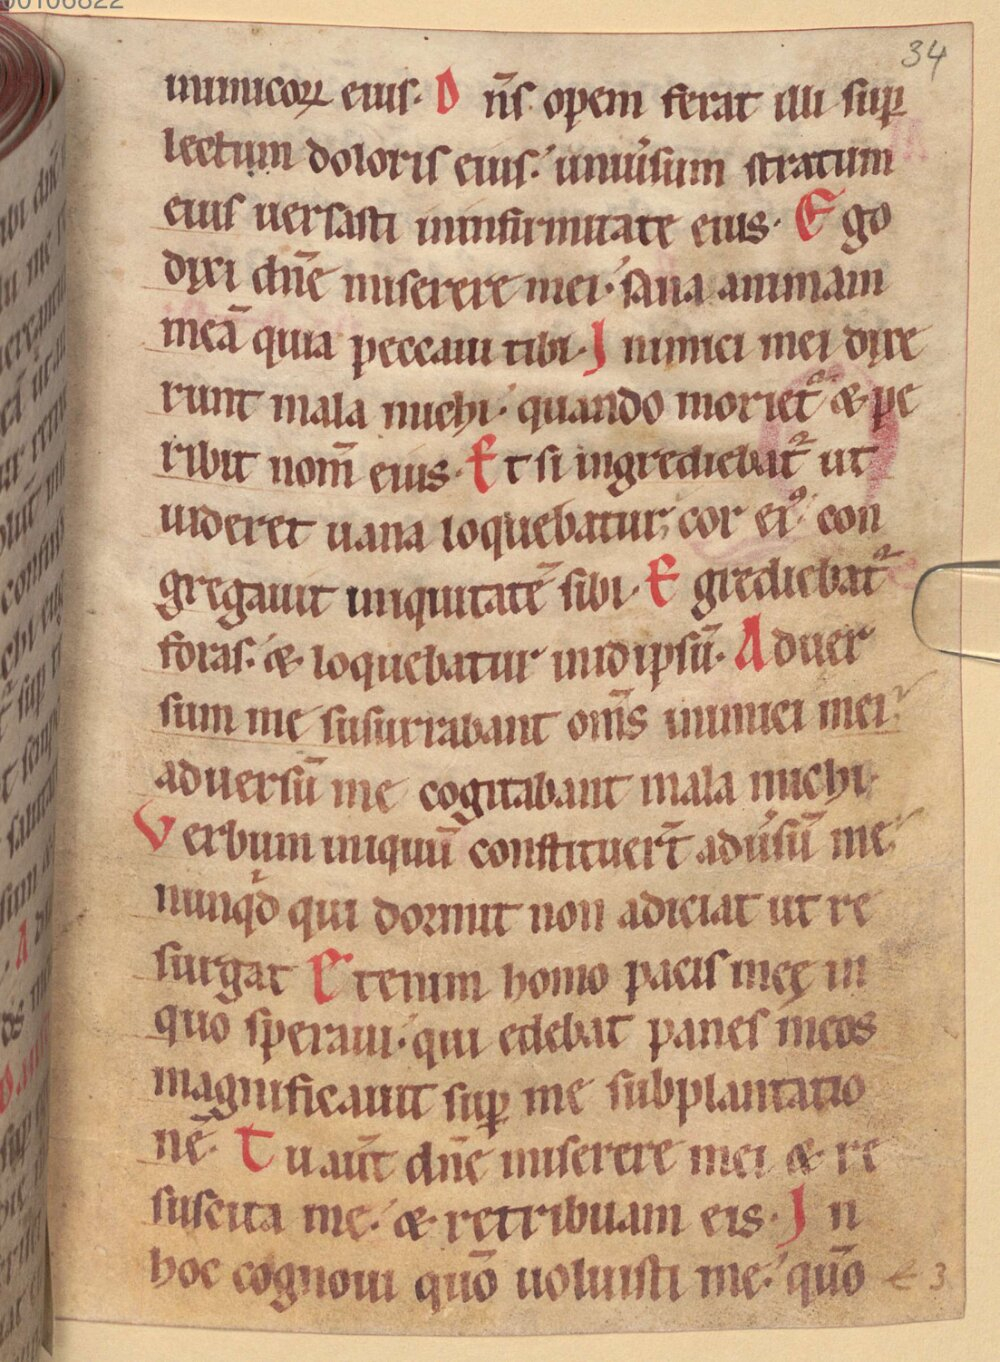 34
inimicoꝝ eius. D n̄s opem ferat illi suꝑ
lectum doloris eius. uniúsum stratum
eius uersasti ininfirmitate eius. E go
dixi dn̄e miserere mei. sana animam
meā quia peccaui tibi. I nimici mei dixe
runt mala michi. quando moriet᷑ & pe
ribit nom̄ eius. E t si ingrediebat᷑ ut
uideret uana loquebatur, cor eiꝰ con
gregauit iniquitatē sibi. E grediebat᷑
foras. & loquebatur inidipsū. A duer
sum me susurrabant om̄s inimici mei.
aduersū me cogitabant mala michi.
V erbum iniquū constituer̄t adúsū me.
nunqd qui dormit non adiciat ut re
surgat E tenim homo pacis meę in
quo speraui. qui edebat panes meos
magnificauit suꝑ me subplantatio
nē. T u aut̄ dn̄e miserere mei & re
suscita me. & retribuam eis. I n
hoc cognoui quō uoluisti me. quō